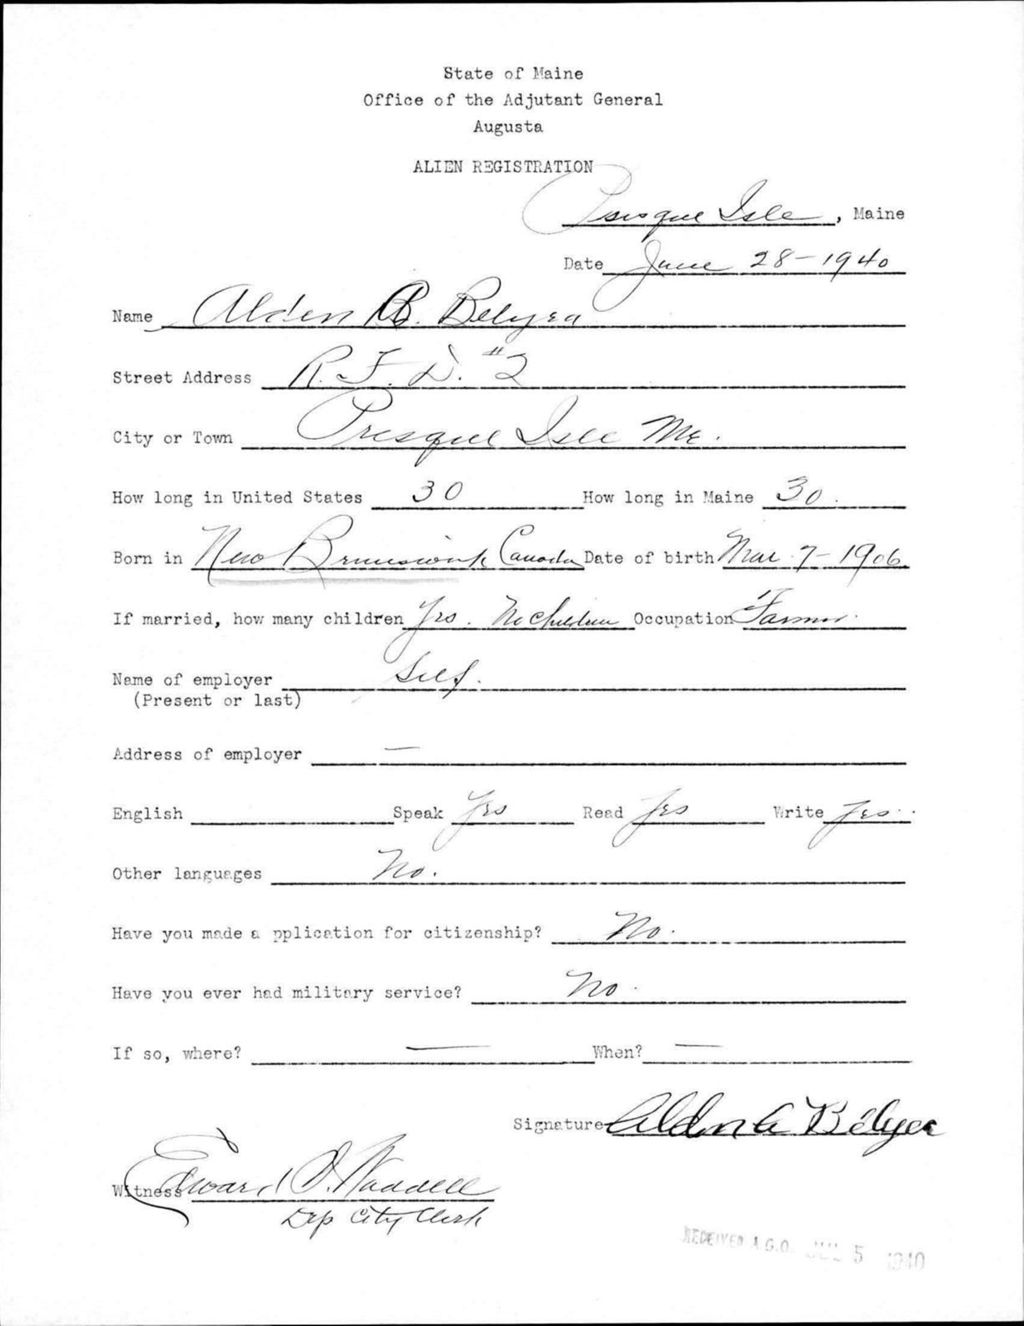 State of Maine
Office of the Adjutant General
Augusta
ALIEN REGISTRATION
Presque Isle, Maine
Date June 28-1940
Name Alden Belyea
Street Address R.F.D. #2
City or Town Presque Isle Me.
How long in United States 30 How long in Maine 30.
Born in New Brunswick Canada Date of birth Mar 7-1906
If married, how many children Yes. No Children Occupation Farmer.
Name of employer Self.
(Present or last)
Address of employer —
English Speak Yes Read Yes Write Yes.
Other languages No.
Have you made a pplication for citizenship? No.
Have you ever had military service? No.
If so, where? — When? —
Signature Alden A Belyea
Witness Edward Waddell
Dep City Clerk
RECEIVED A.G.O. JUL 5 1940